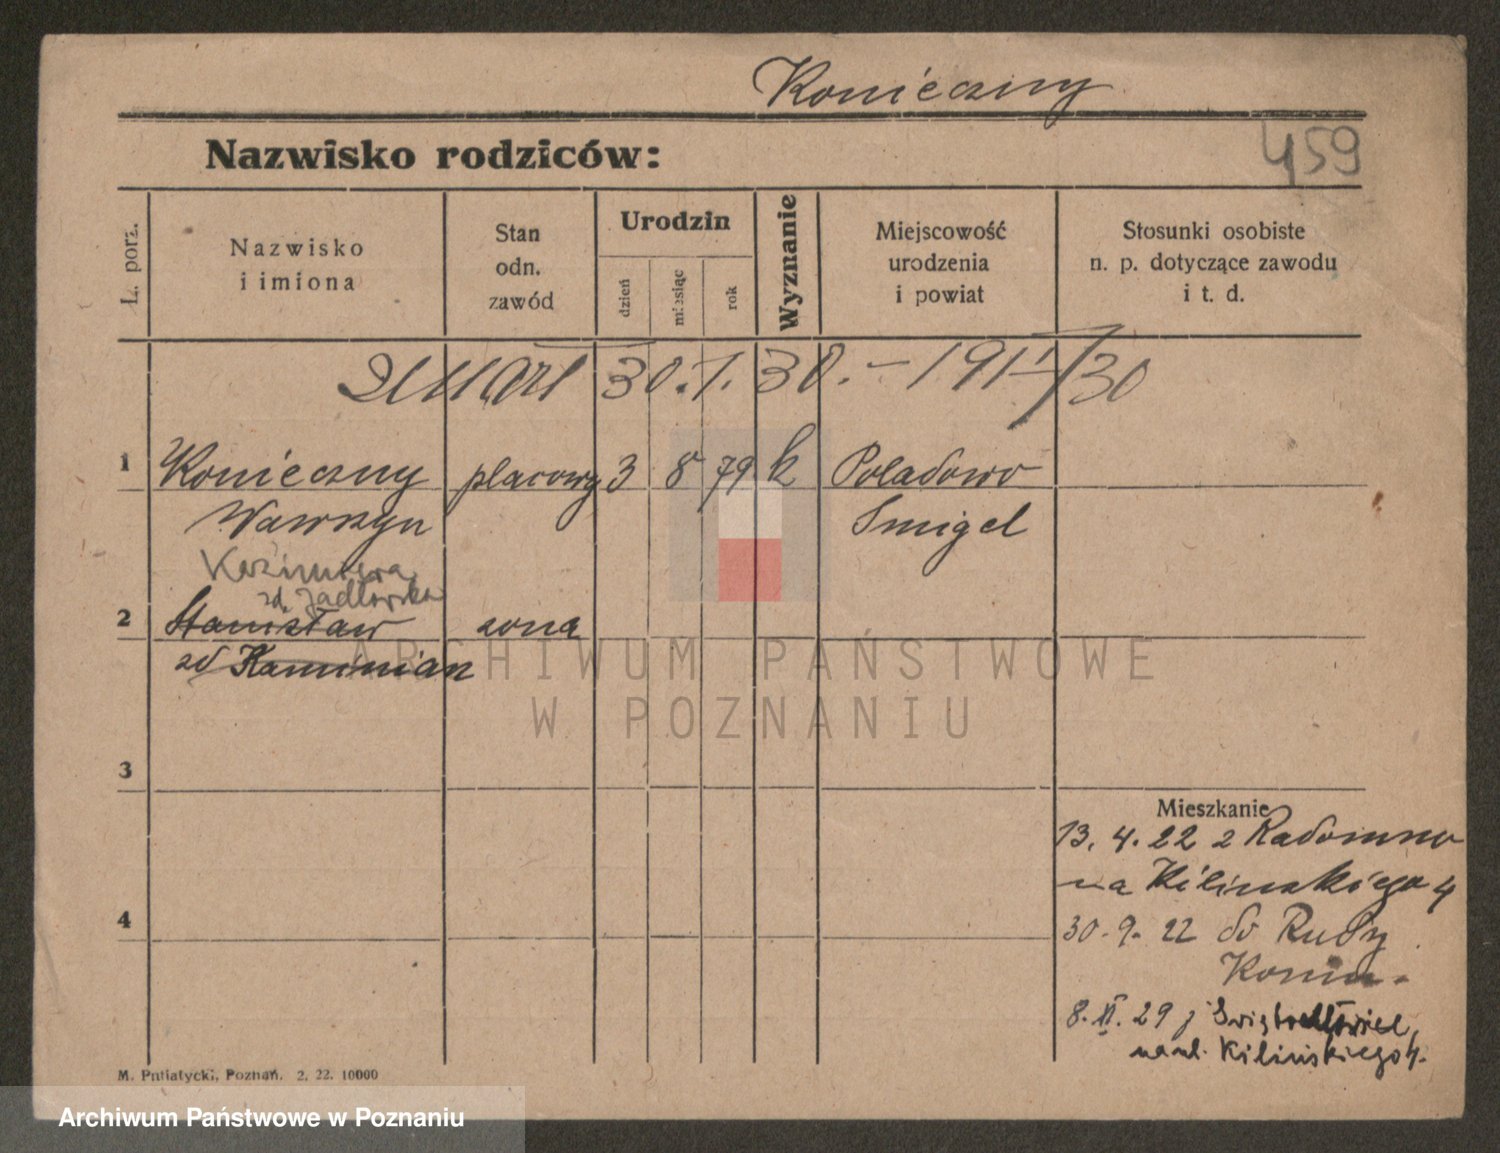 Konieczny
459
Nazwisko rodziców:
L. porz.
Nazwisko
i imiona
Stan
odn.
zawód
Urodzin
dzień
miesiąc
rok
Wyznanie
Miejscowość
urodzenia
i powiat
Stosunki osobiste
n. p. dotyczące zawodu
i t. d.
zmarł 30.1.30.
1 Konieczny placowy 3 8 79 k Poladowo
Wawrzyn Smigel
Kazimiera
zd. Jadłowska
2 Stanisław zona
zd Kaminian
3
4
Mieszkanie
13. 4. 22 z Radomna
na Kilinskiego 4
30. 9. 22 do Rudy
8. XI. 29 z Świętochłowic,
na ul. Kilińskiego 4.
M. Putiatycki, Poznań. 2. 22. 10000
ARCHIWUM PAŃSTWOWE
W POZNANIU
Archiwum Państwowe w Poznaniu